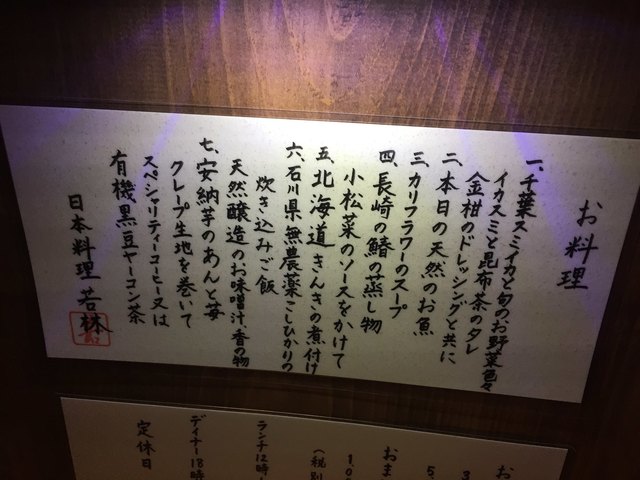 お料理
一、千葉スミイカと旬のお野菜色々
イカスミと昆布茶のタレ
金柑のドレッシングと共に
二、本日の天然のお魚
三、カリフラワーのスープ
四、長崎の鰆の蒸し物
小松菜のソースをかけて
五、北海道きんきの煮付け
六、石川県無農薬こしひかりの
炊き込みご飯
天然醸造のお味噌汁、香の物
七、安納芋のあんと苺
クレープ生地を巻いて
スペシャリティーコーヒー又は
有機黒豆ヤーコン茶
日本料理 若林
お
3
5.
おま
1.0
(税別
ランチ12時
ディナー18時
定休日